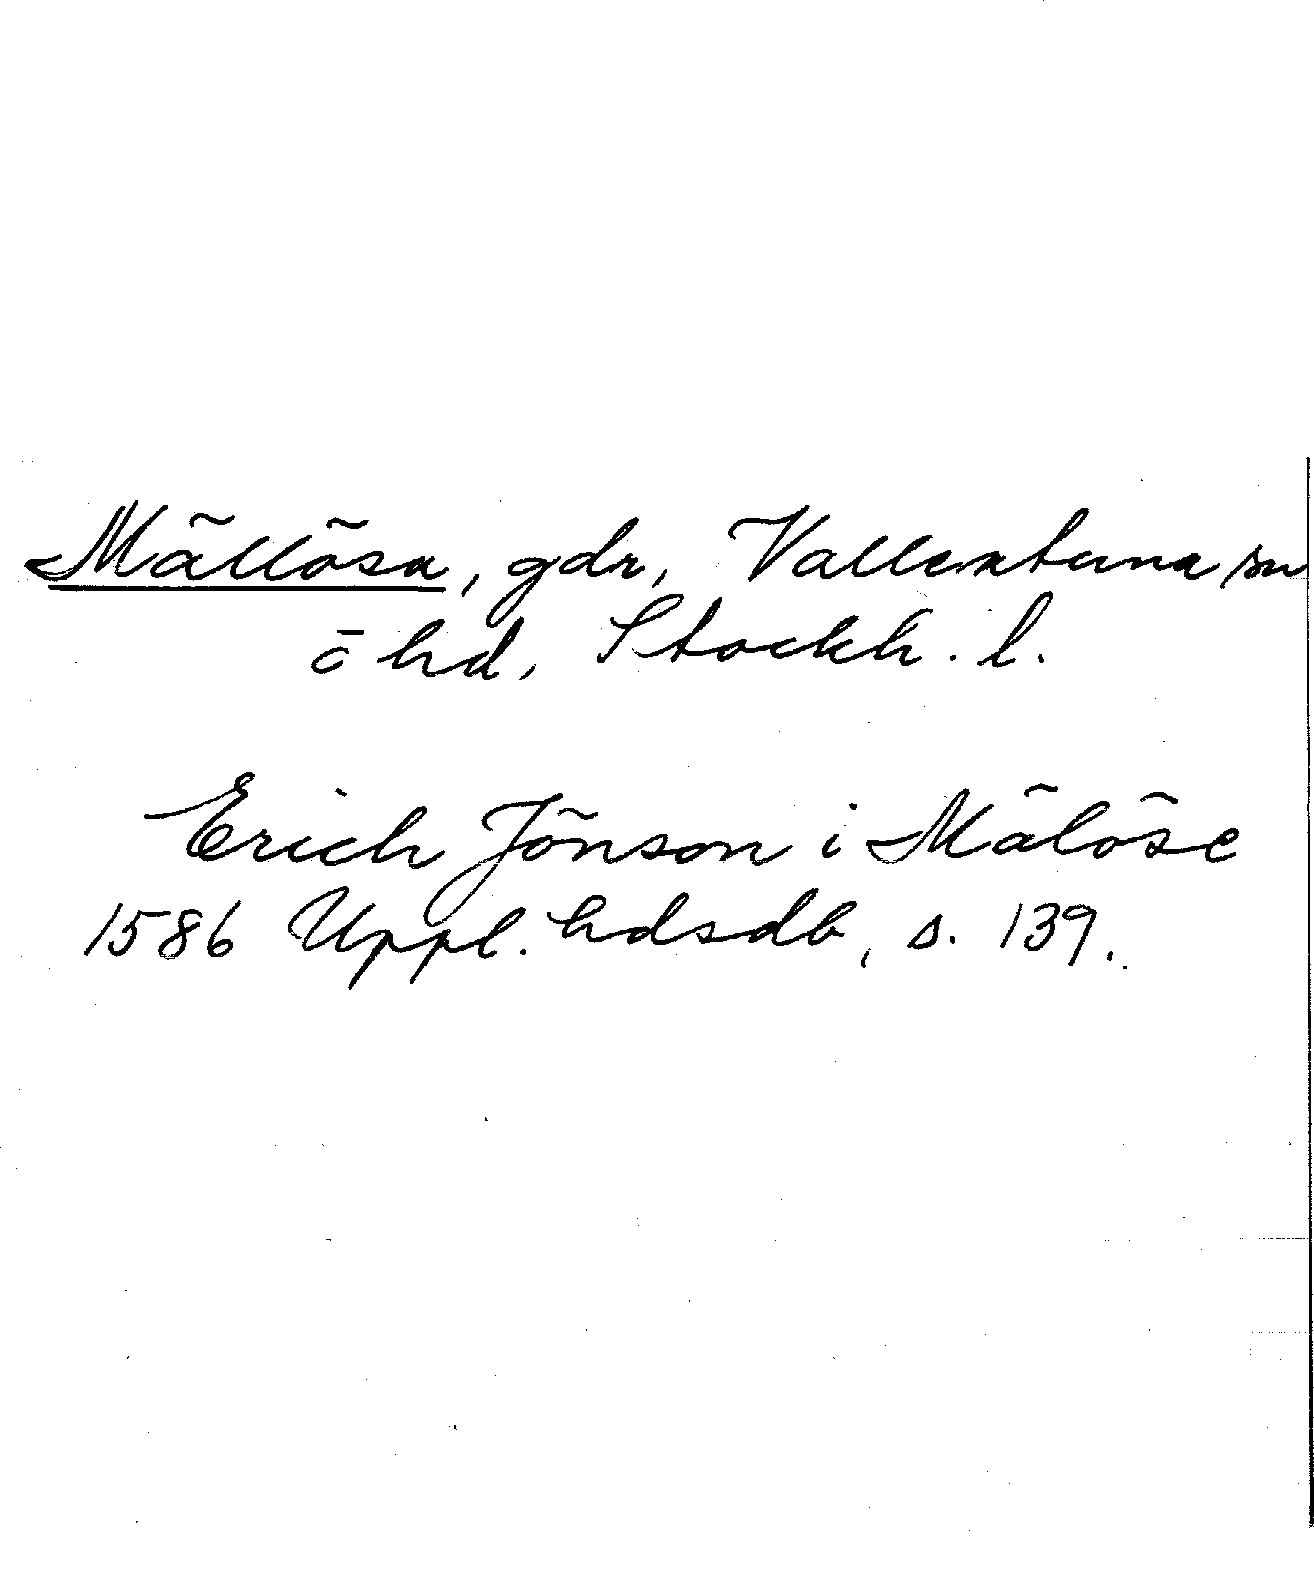 Mällösa, gdr, Vallentuna sn
o hd, Stockh. l.
Erich Jönson i Mälöse
1586 Uppl. hdsdb, s. 139.